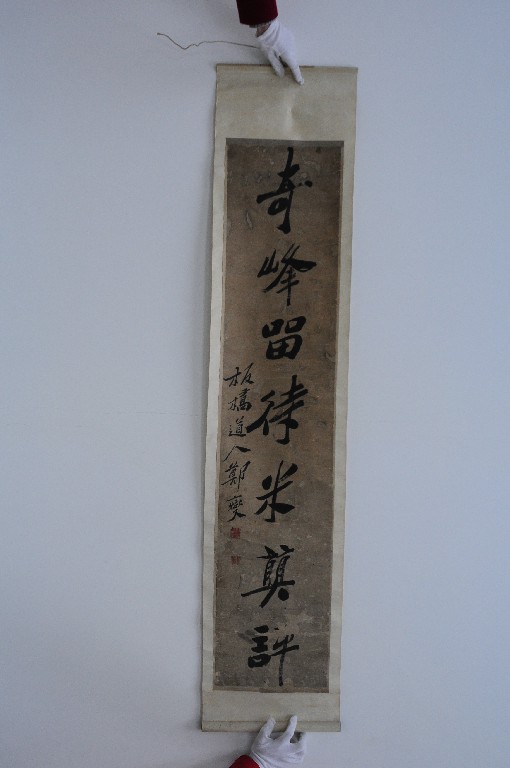 奇峰留待米𫇴評
板橋道人鄭燮